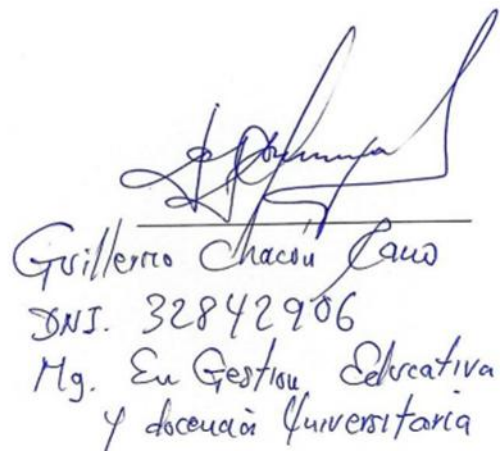 Guillermo Chacón Cano
DNI. 32842906
Mg. En Gestion Educativa
y docencia Universitaria